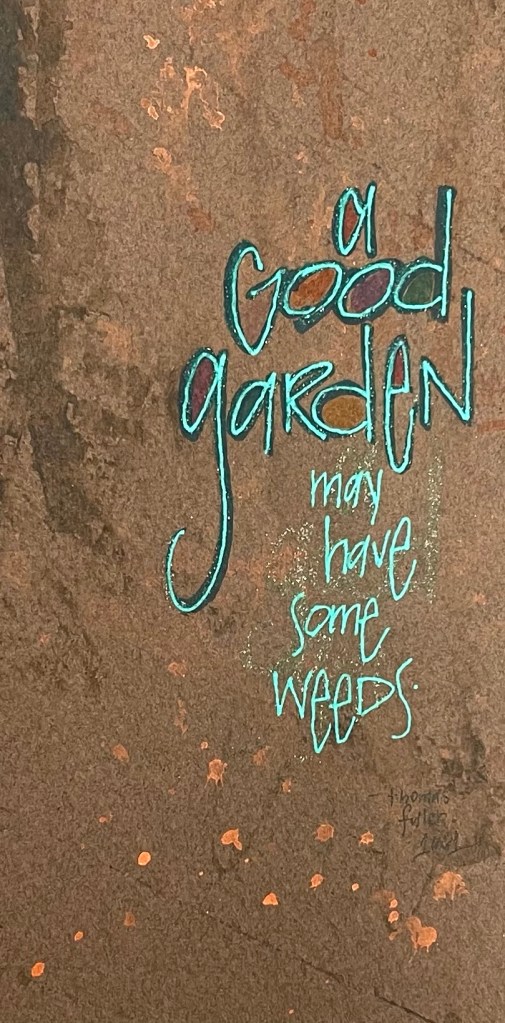 a
Good
garden
may
have
some
weeds.
thomas
fuller